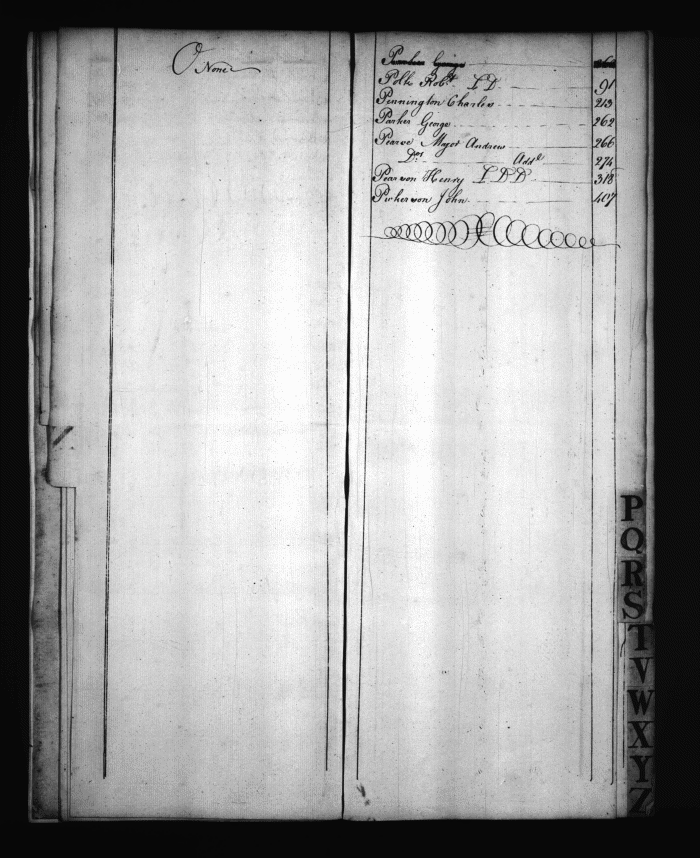 O None
Polk Robt. I D 91
Pennington Charles 213
Parker George 262
Pearce Major Andrew 266
Do. Addl. 274
Pearson Henry I D D 318
Pinkerson John 407
P
Q
R
S
T
V
W
X
Y
Z